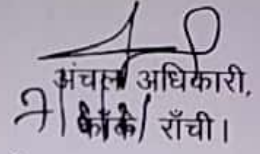 अंचल अधिकारी,
काँके राँची।